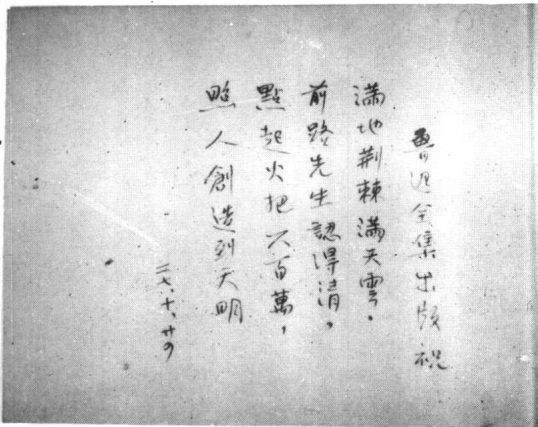 魯迅全集出版祝
滿地荆棘滿天雲。
前路先生認得清。
點起火把六百萬，
照人創造到天明
二七、十、廿